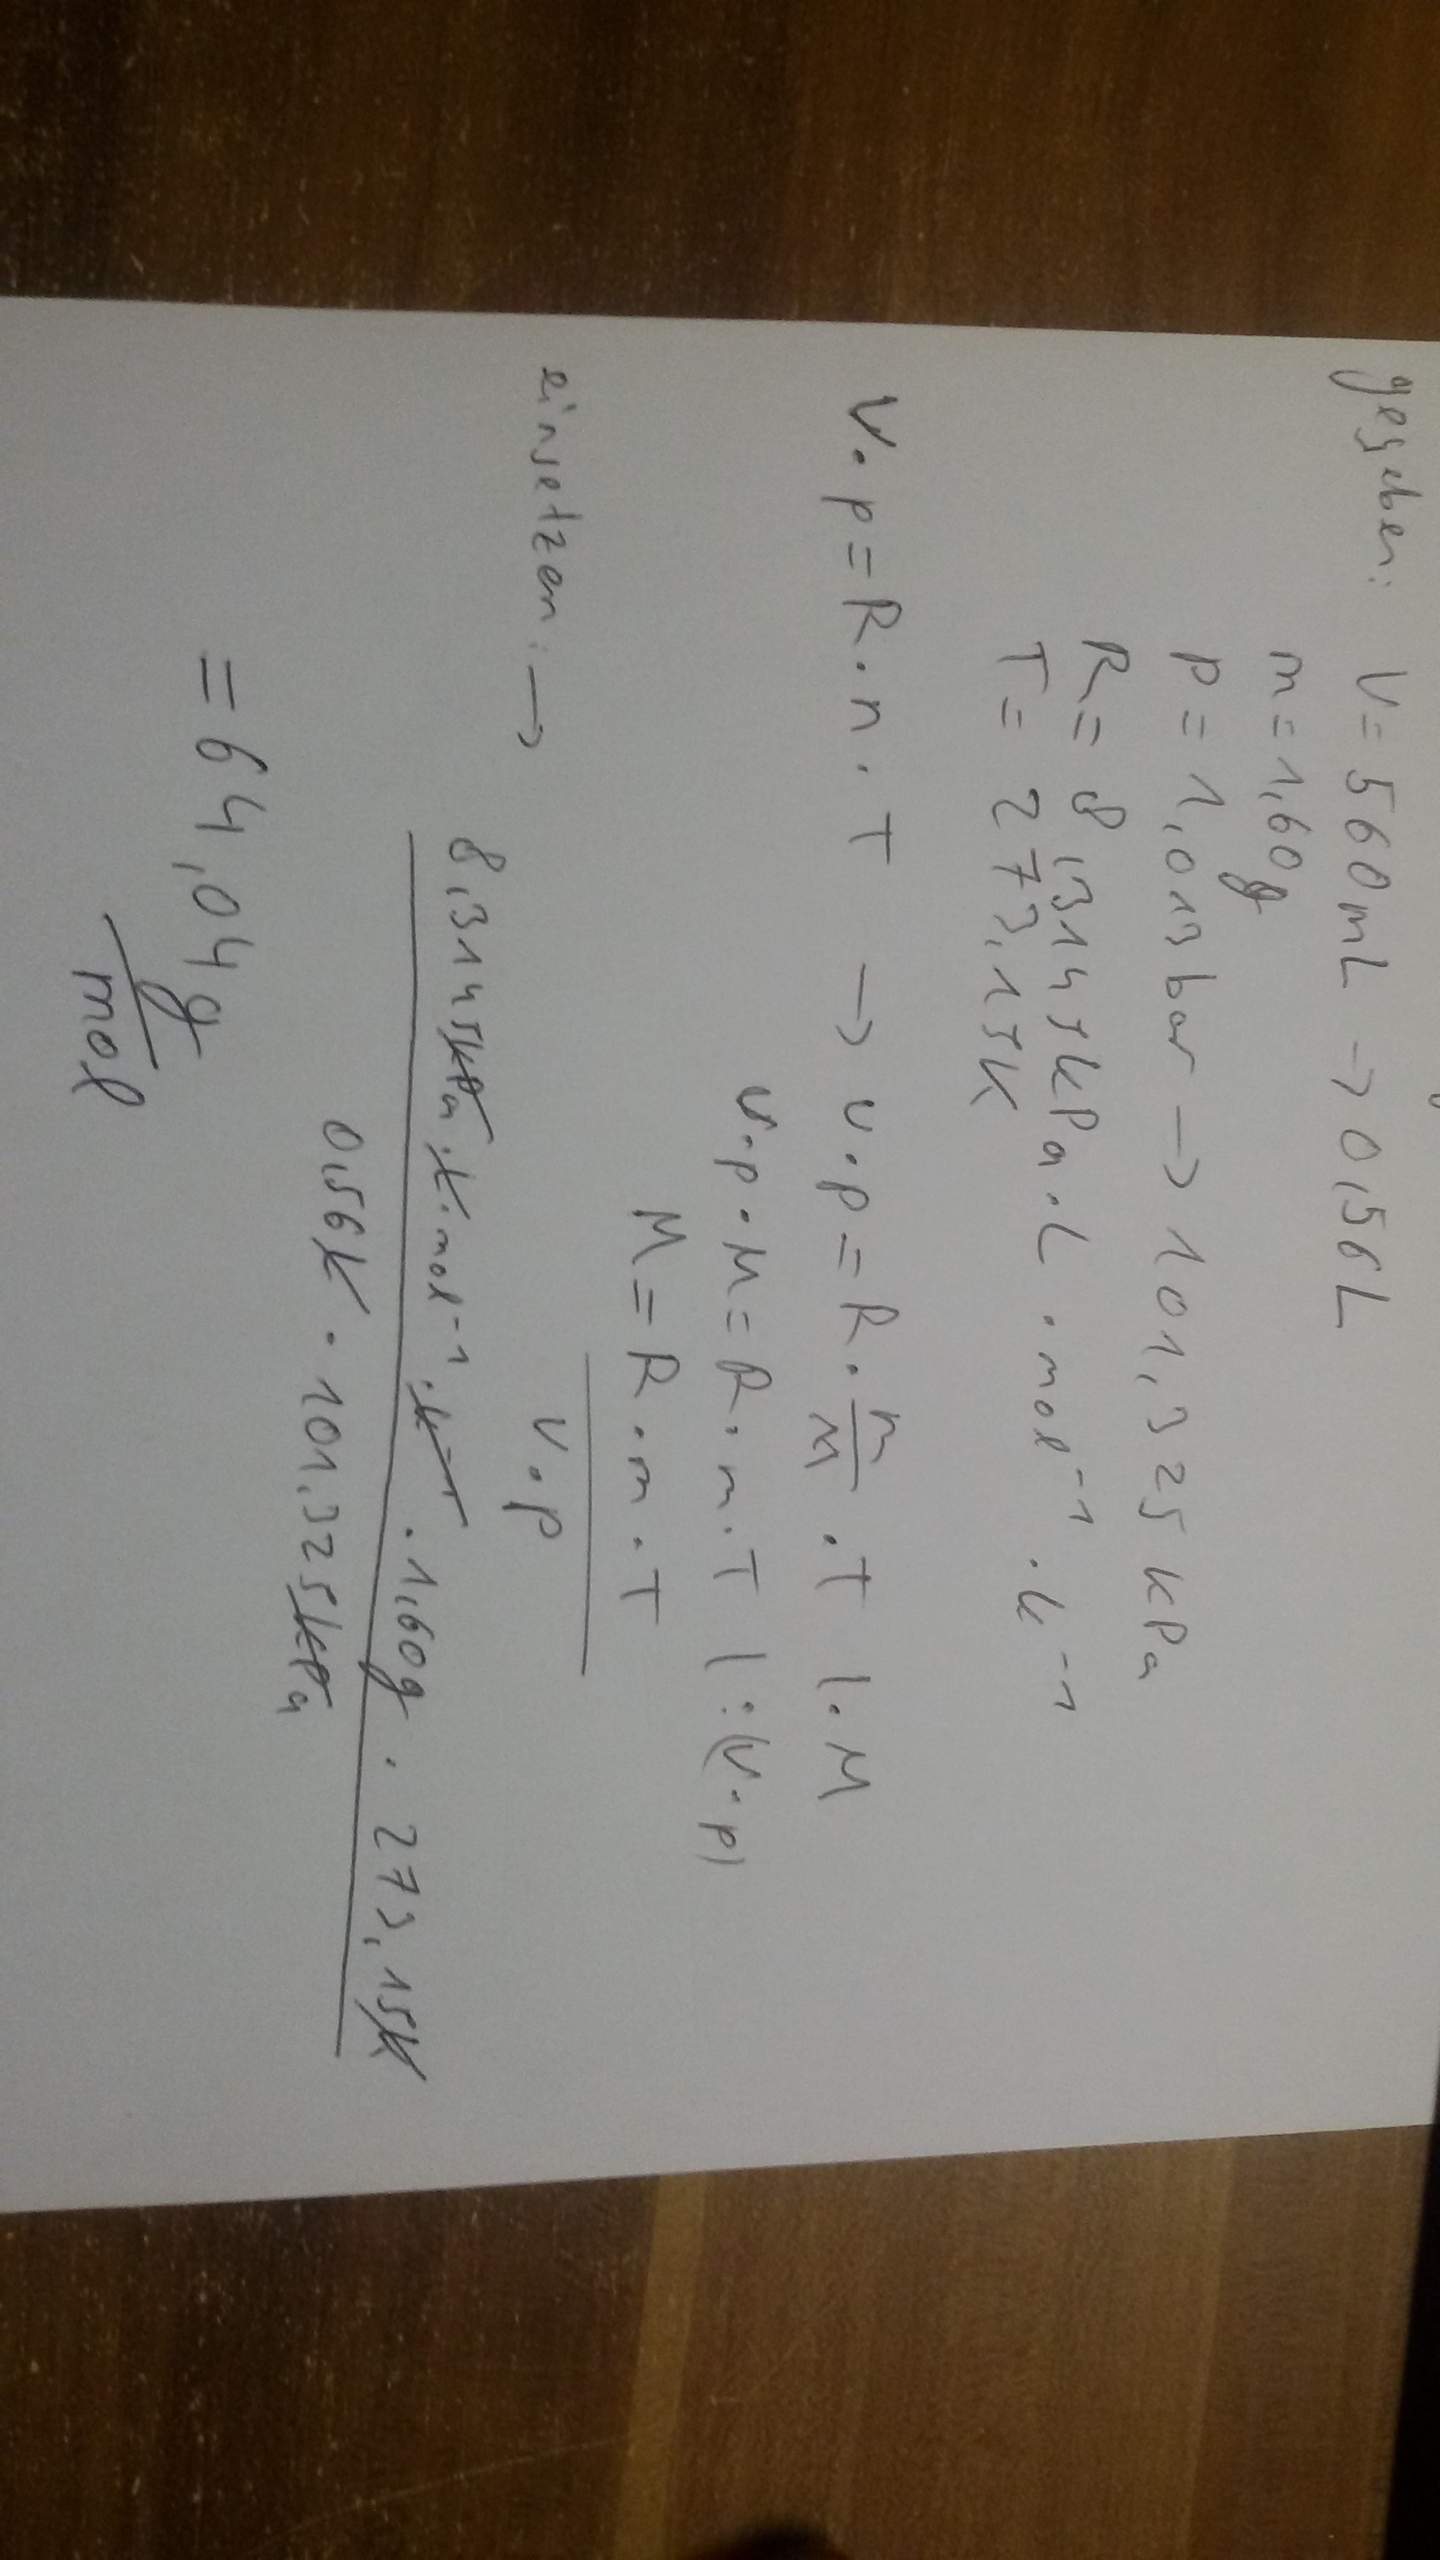 gegeben: V = 560mL → 0,56L
m = 1,60g
p = 1,013bar → 101,325 kPa
R = 8,3145kPa·L·mol⁻¹·k⁻¹
T = 273,15K
V·p = R·n·T → V·p = R·m/M·T |·M
V·p·M = R·m·T |:(V·p)
M = R·m·T
V·p
einsetzen: → 8,3145kPa·L·mol⁻¹·k⁻¹·1,60g·273,15K
0,56L·101,325kPa
= 64,04 g
mol